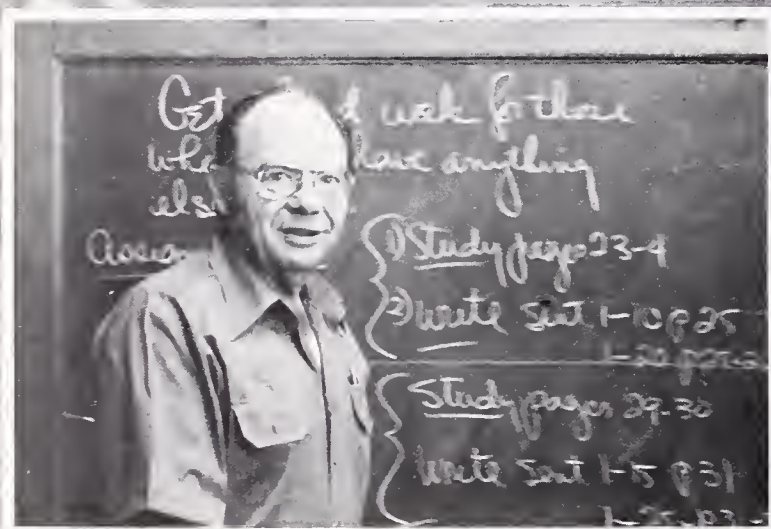 Get work for those
who have anything
els
Assig
1) Study pages 23-4
2) Write Sent 1-10 p 25
Study pages 29-30
Write Sent 1-15 p 31